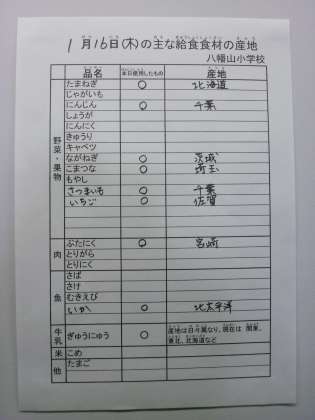 1月16日(木)の主な給食食材の産地
八幡山小学校
品名 本日使用したもの 産地
野菜・果物
たまねぎ ○ 北海道
じゃがいも
にんじん ○ 千葉
しょうが
にんにく
きゅうり
キャベツ
ながねぎ ○ 茨城
こまつな ○ 埼玉
もやし
さつまいも ○ 千葉
いちご ○ 佐賀
肉
ぶたにく ○ 宮崎
とりがら
とりにく
魚
さば
さけ
むきえび
いか ○ 北太平洋
牛乳 ぎゅうにゅう ○ 産地は日々異なり、現在は 関東、
東北、北海道など
米 こめ
他 たまご